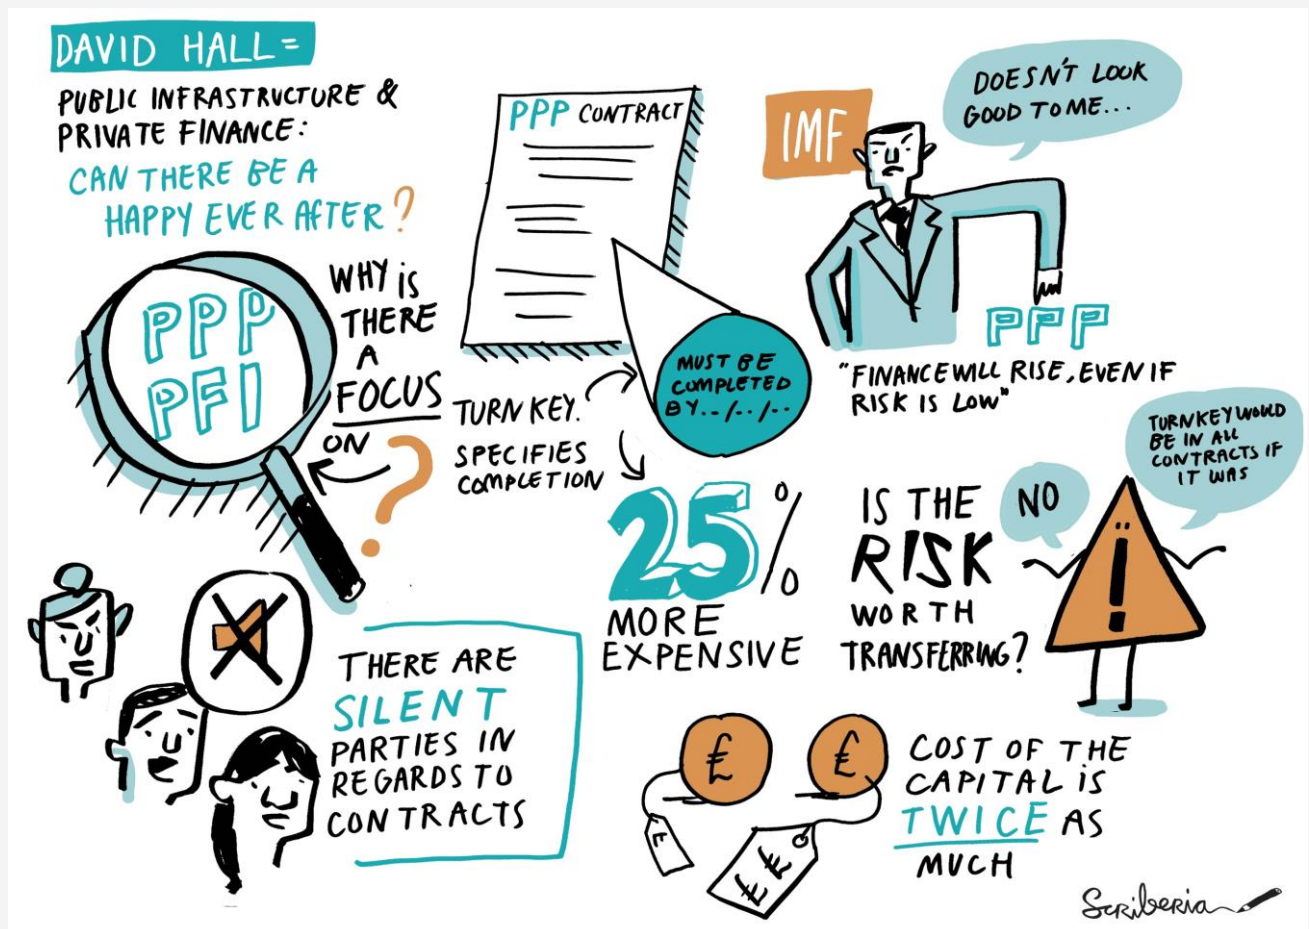 DAVID HALL =
PUBLIC INFRASTRUCTURE &
PRIVATE FINANCE:
CAN THERE BE A
HAPPY EVER AFTER?
PPP
PFI
WHY is
THERE
A
FOCUS
ON
?
PPP CONTRACT
MUST BE
COMPLETED
BY../../..
TURN KEY.
SPECIFIES
COMPLETION
25%
MORE
EXPENSIVE
IMF
DOESN'T LOOK
GOOD TO ME...
PPP
"FINANCE WILL RISE, EVEN IF
RISK IS LOW"
IS THE
RISK
WORTH
TRANSFERRING?
NO
TURNKEY WOULD
BE IN ALL
CONTRACTS IF
IT WAS
!
THERE ARE
SILENT
PARTIES IN
REGARDS TO
CONTRACTS
£
£
£
£ £
COST OF THE
CAPITAL iS
TWICE AS
MUCH
Scriberia